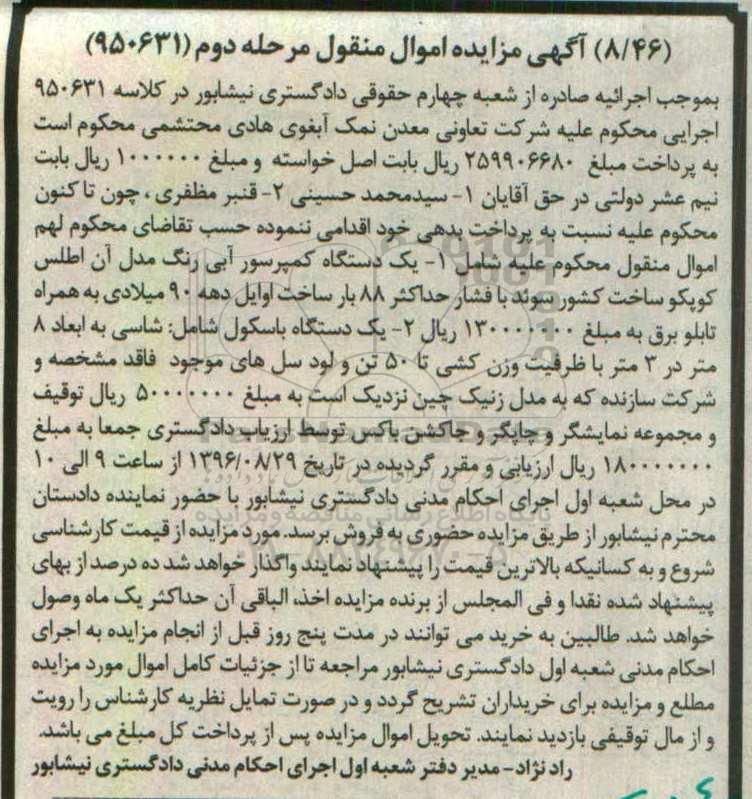 (۸/۴۶) آگهی مزایده اموال منقول مرحله دوم (۹۵۰۶۳۱)
بموجب اجرائیه صادره از شعبه چهارم حقوقی دادگستری نیشابور در کلاسه ۹۵۰۶۳۱
اجرایی محکوم علیه شرکت تعاونی معدن نمک آبغوی هادی محتشمی محکوم است
به پرداخت مبلغ ۲۵۹۹۰۶۶۸۰ ریال بابت اصل خواسته و مبلغ ۱۰۰۰۰۰۰ ریال بابت
نیم عشر دولتی در حق آقایان ۱- سیدمحمد حسینی ۲- قنبر مظفری ، چون تا کنون
محکوم علیه نسبت به پرداخت بدهی خود اقدامی ننموده حسب تقاضای محکوم لهم
اموال منقول محکوم علیه شامل ۱- یک دستگاه کمپرسور آبی رنگ مدل آن اطلس
کوپکو ساخت کشور سوئد با فشار حداکثر ۸۸ بار ساخت اوایل دهه ۹۰ میلادی به همراه
تابلو برق به مبلغ ۱۳۰۰۰۰۰۰۰ ریال ۲- یک دستگاه باسکول شامل: شاسی به ابعاد ۸
متر در ۳ متر با ظرفیت وزن کشی تا ۵۰ تن و لود سل های موجود فاقد مشخصه و
شرکت سازنده که به مدل زنیک چین نزدیک است به مبلغ ۵۰۰۰۰۰۰۰ ریال توقیف
و مجموعه نمایشگر و چاپگر و جاکشن باکس توسط ارزیاب دادگستری جمعا به مبلغ
۱۸۰۰۰۰۰۰۰ ریال ارزیابی و مقرر گردیده در تاریخ ۱۳۹۶/۰۸/۲۹ از ساعت ۹ الی ۱۰
در محل شعبه اول اجرای احکام مدنی دادگستری نیشابور با حضور نماینده دادستان
محترم نیشابور از طریق مزایده حضوری به فروش برسد. مورد مزایده از قیمت کارشناسی
شروع و به کسانیکه بالاترین قیمت را پیشنهاد نمایند واگذار خواهد شد ده درصد از بهای
پیشنهاد شده نقدا و فی المجلس از برنده مزایده اخذ، الباقی آن حداکثر یک ماه وصول
خواهد شد. طالبین به خرید می توانند در مدت پنج روز قبل از انجام مزایده به اجرای
احکام مدنی شعبه اول دادگستری نیشابور مراجعه تا از جزئیات کامل اموال مورد مزایده
مطلع و مزایده برای خریداران تشریح گردد و در صورت تمایل نظریه کارشناس را رویت
و از مال توقیفی بازدید نمایند. تحویل اموال مزایده پس از پرداخت کل مبلغ می باشد.
راد نژاد - مدیر دفتر شعبه اول اجرای احکام مدنی دادگستری نیشابور